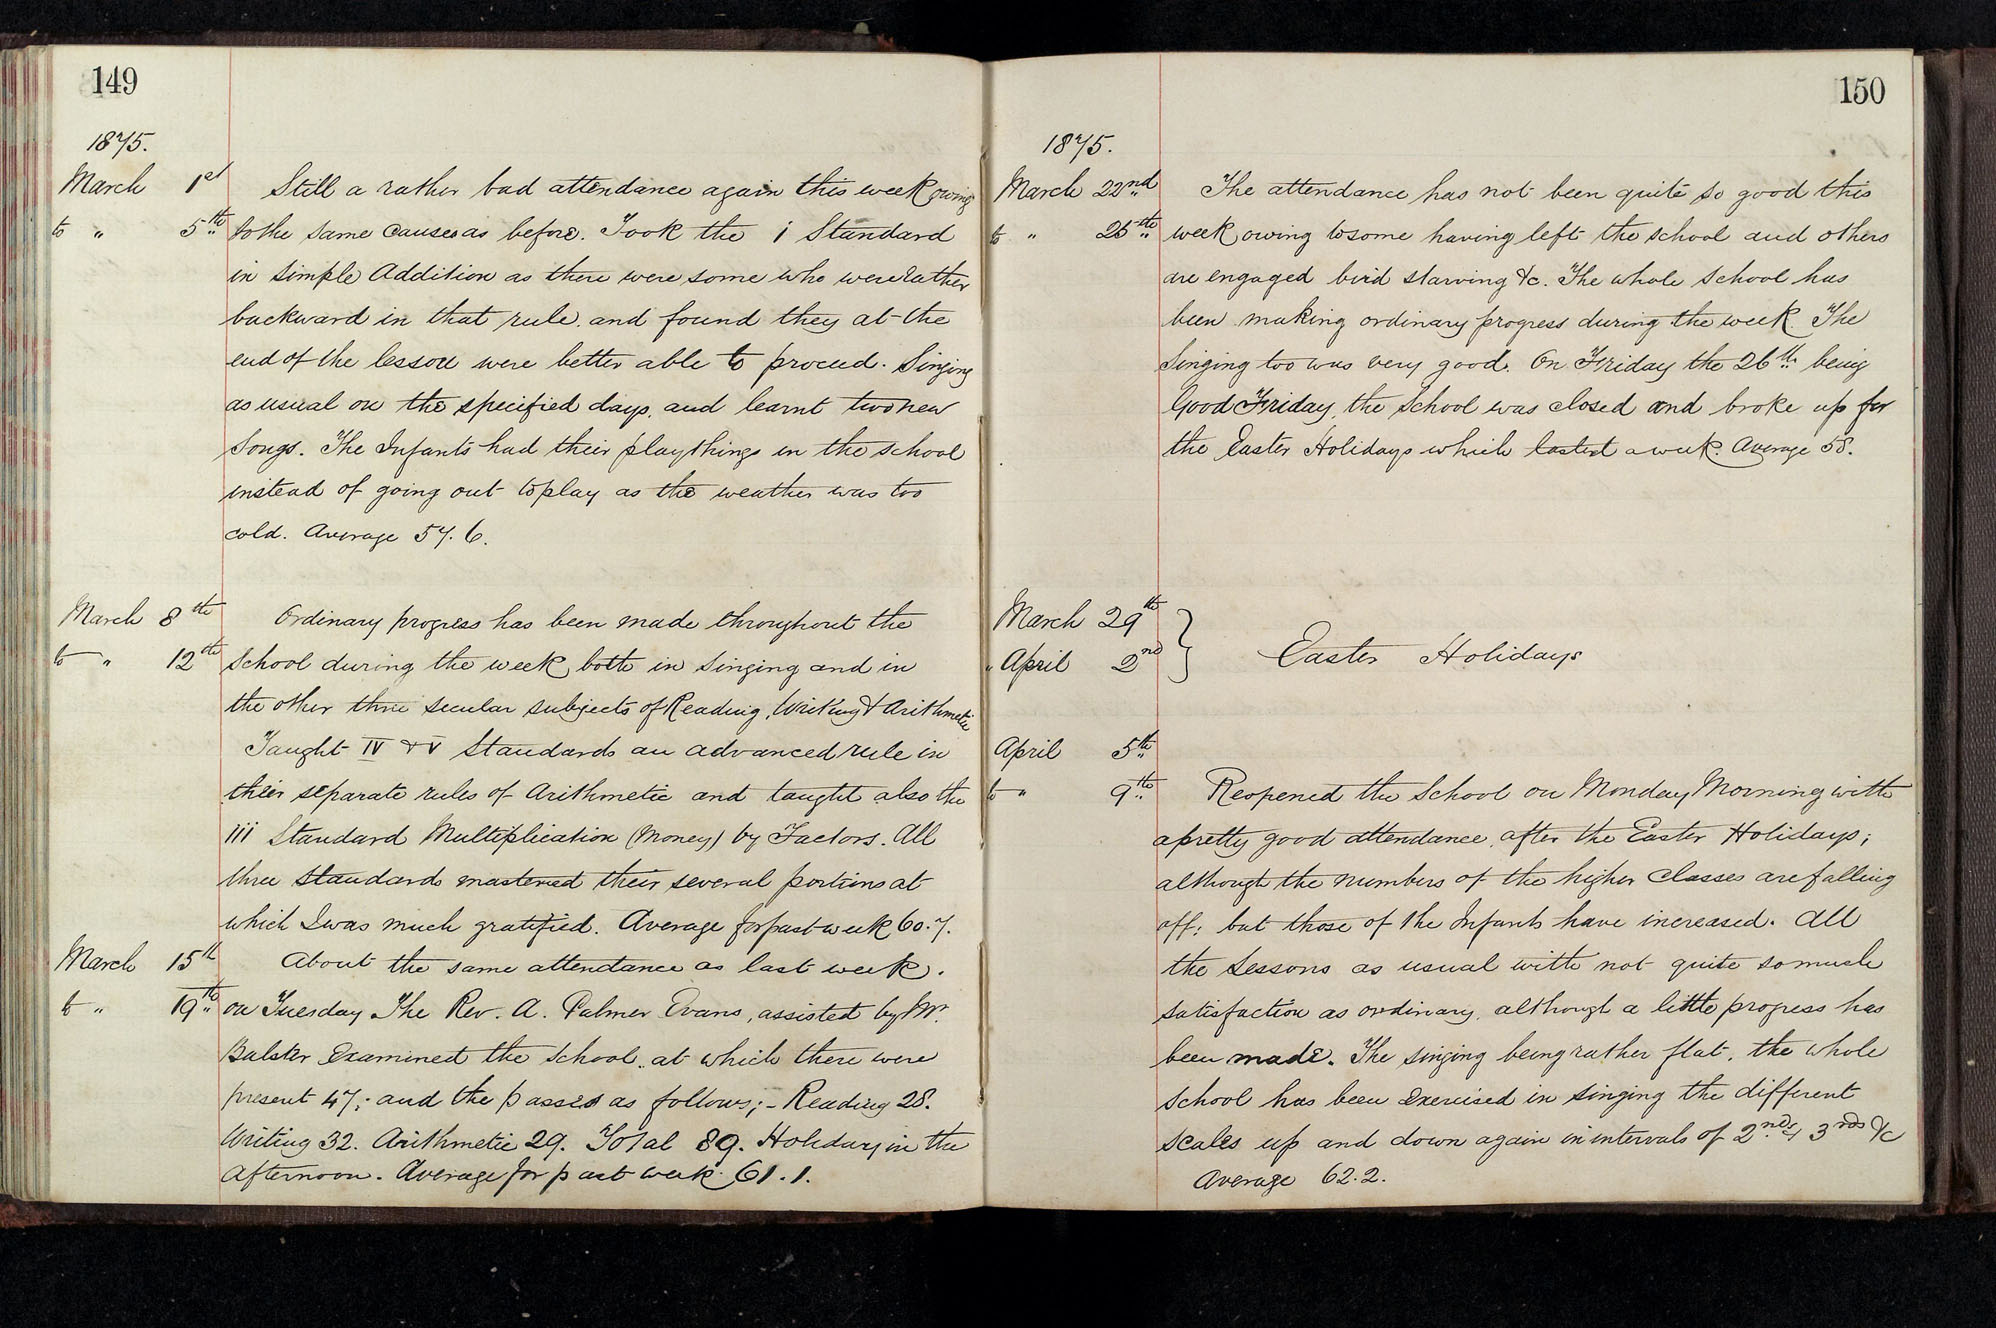 149
1875.
March 1st Still a rather bad attendance again this week owing
to " 5th to the same causes as before. Took the i Standard
in simple Addition as there were some who were rather
backward in that rule, and found they at the
end of the lesson were better able to proceed. Singing
as usual on the specified days, and learnt two new
Songs. The Infants had their playthings in the school
instead of going out to play as the weather was too
cold. Average 57.6.
March 8th Ordinary progress has been made throughout the
to " 12th School during the week both in singing and in
the other three secular subjects of Reading, Writing & Arithmetic
Taught IV & V Standards an advanced rule in
their separate rules of Arithmetic and taught also the
iii Standard Multiplication (Money) by Factors. All
three Standards mastered their several portions at
which I was much gratified. Average for past week 60.7.
March 15th About the same attendance as last week.
to " 19th on Tuesday The Rev. A. Palmer Evans, assisted by Mr.
Balster Examined the School, at which there were
present 47; and the passes as follows; - Reading 28.
Writing 32. Arithmetic 29. Total 89. Holiday in the
Afternoon. Average for past week. 61.1.
150
1875.
March 22nd The attendance has not been quite so good this
to " 26th week owing to some having left the school and others
are engaged bird starving &c. The whole School has
been making ordinary progress during the week. The
Singing too was very good. On Friday the 26th being
Good Friday, the School was closed and broke up for
the Easter Holidays which lasted a week. Average 58.
March 29th
" April 2nd } Easter Holidays
April 5th
to " 9th Reopened the School on Monday Morning with
a pretty good attendance, after the Easter Holidays;
although the numbers of the higher Classes are falling
off; but those of the Infants have increased. All
the Lessons as usual with not quite so much
satisfaction as ordinary, although a little progress has
been made. The singing being rather flat, the whole
School has been Exercised in singing the different
scales up and down again in intervals of 2nds, 3rds &c
Average 62.2.